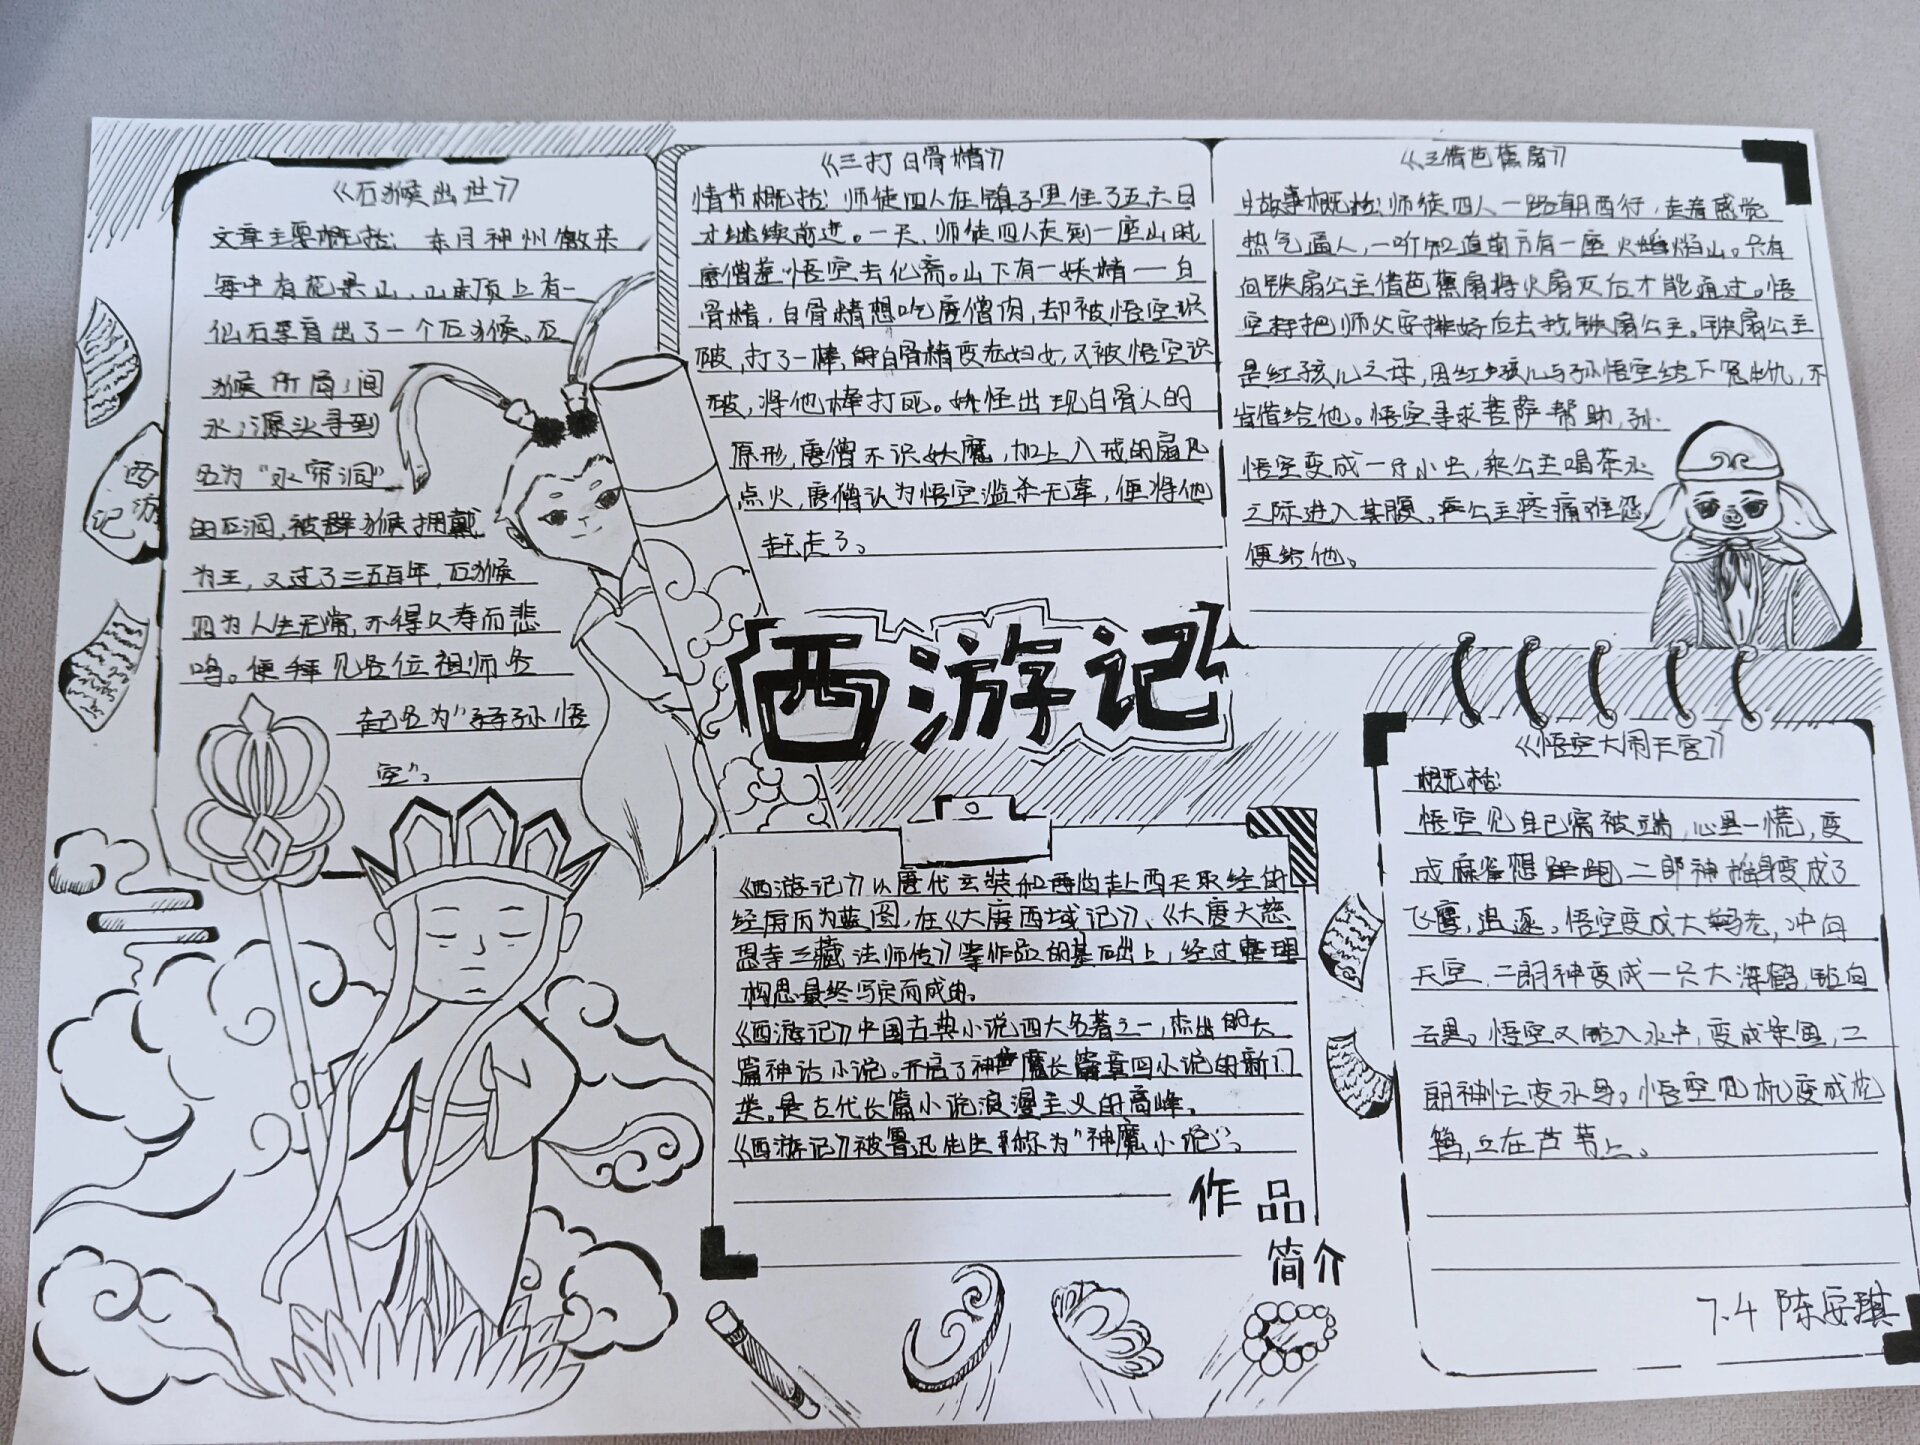 《石猴出世》
文章主要概括: 东月神州傲来
每中有花果山,山顶上有一
仙石孕育出了一个石猴。石
猴所居涧
水源头寻到
名为“水帘洞”
的石洞,被群猴拥戴
为王,又过了三五百年,石猴
因为人生无常,不得久寿而悲
呜。便拜见各位祖师
起名为“孙悟
空”。
西游
记
《三打白骨精》
情节概括: 师徒四人在镇子里住了五六日
才继续前进。一天,师徒四人走到一座山时
唐僧差悟空去化斋。山下有一妖精——白
骨精,白骨精想吃唐僧肉,却被悟空识
破,打了一棒,白骨精变老妇女,又被悟空识
破,将他棒打死。妖怪出现白骨人的
原形,唐僧不识妖魔,加上八戒的扇风
点火,唐僧认为悟空滥杀无辜,便将他
赶走了。
《三借芭蕉扇》
故事概括:师徒四人一路朝西行,走着感觉
热气逼人,一听知道前方有一座火焰山。只有
向铁扇公主借芭蕉扇将火扇灭后才能通过。悟
空把师父安排好后去找铁扇公主。铁扇公主
是红孩儿之母,因红孩儿与孙悟空结下冤仇,不
肯借给他。悟空寻求菩萨帮助,孙
悟空变成一只小虫,乘公主喝茶水
之际进入其腹,公主疼痛难忍
便给他。
西游记
《西游记》以唐代玄奘和尚赴西天取经的
经历为蓝图,在《大唐西域记》、《大唐大慈
恩寺三藏法师传》等作品的基础上,经过整理
构思最终写定而成的。
《西游记》中国古典小说四大名著之一,杰出的长
篇神话小说。开启了神魔长篇章回小说的新门
类。是古代长篇小说浪漫主义的高峰。
《西游记》被鲁迅先生称为“神魔小说”。
作品
简介
《悟空大闹天宫》
概括:
悟空见自己窝被端,心里一慌,变
成麻雀想跑,二郎神摇身变成了
飞鹰,追逐。悟空变成大鹚老,冲向
天空,二郎神变成一只大海鹤,钻向
云里。悟空又钻入水中,变成条鱼,二
郎神忙变水鸟。悟空见机变成花
鸨,立在芦苇上。
7.4 陈安琪